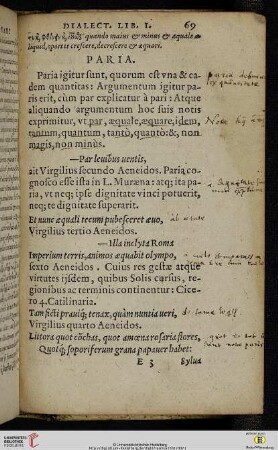 DIALECT. LIB. I. 69
quando maius & minus & æquale a-
liquid, oportet crescere, decrescere & æquari.
PARIA.
Paria igitur sunt, quorum est vna & ea-
dem quantitas: Argumentum igitur pa-
ris erit, cùm par explicatur à pari: Atque
aliquando argumentum hoc suis notis
exprimitur, vt par, æquale, æquare, idem,
tantum, quantum, tantò, quantò: &, non
magis, non minùs.
—Par leuibus uentis,
ait Virgilius secundo Aeneidos. Paria co-
gnosco esse ista in L. Muræna: atq; ita pa-
ria, vt neq; ipse dignitate vinci potuerit,
neq; te dignitate superarit.
Et nunc æquali tecum pubesceret æuo,
Virgilius tertio Aeneidos.
—Illa inclyta Roma
Imperium terris, animos æquabit olympo,
sexto Aeneidos. Cuius res gestæ atque
virtutes ijsdem, quibus Solis cursus, re-
gionibus ac terminis continentur: Cice-
ro 4. Catilinaria.
Tam ficti prauiq; tenax, quàm nuntia ueri,
Virgilius quarto Aeneidos.
Littora quot cōchas, quot amœna rosaria flores,
Quotq; soporiferum grana papauer habet:
E 3 Sylua